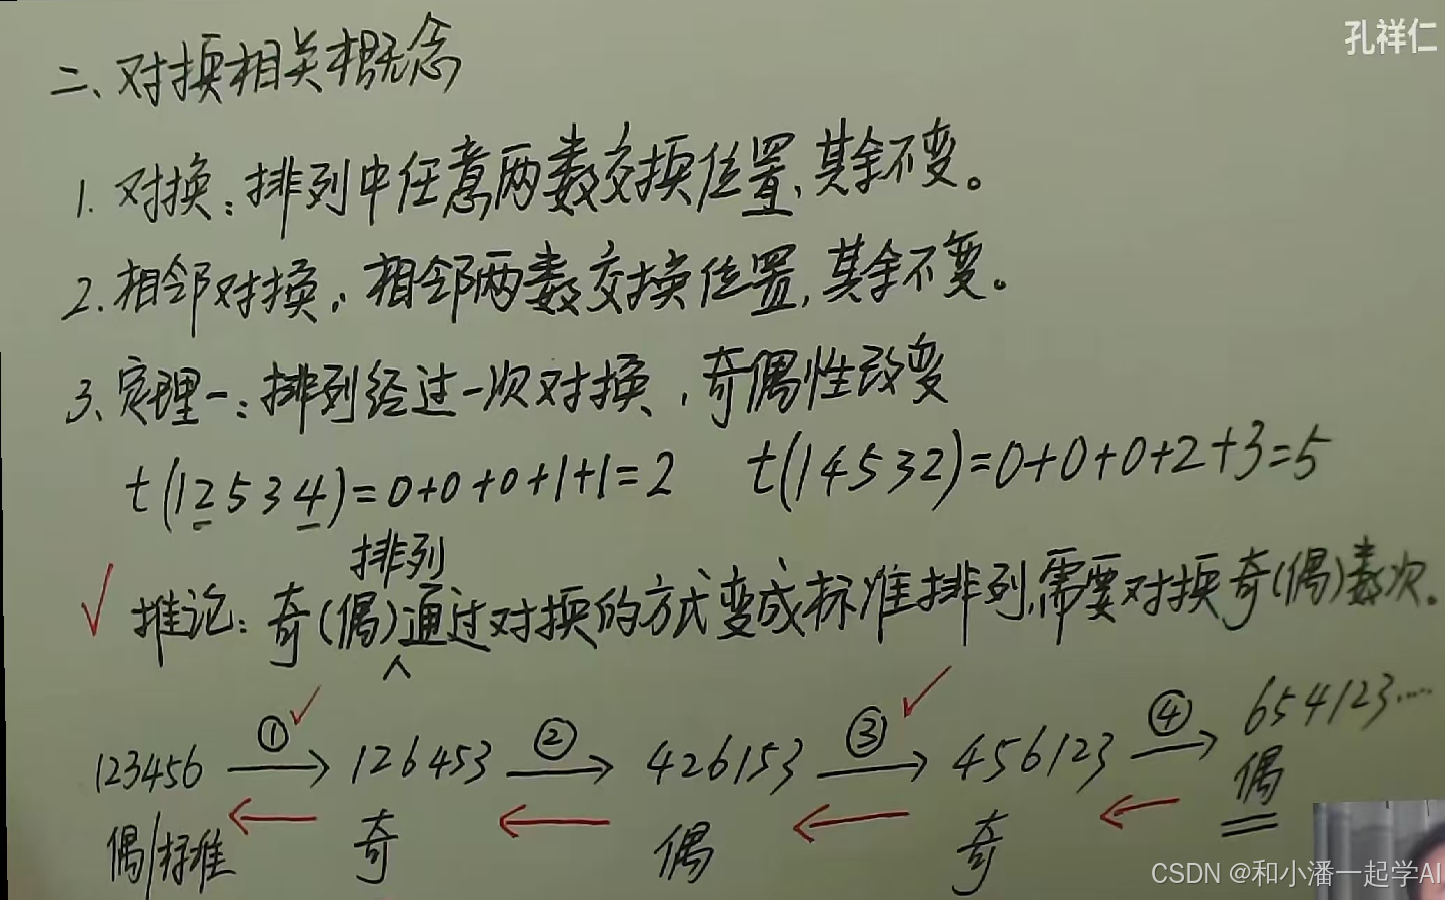 孔祥仁
二、对换相关概念
1. 对换：排列中任意两数交换位置，其余不变。
2. 相邻对换：相邻两数交换位置，其余不变。
3、定理一：排列经过一次对换，奇偶性改变
t(12534)=0+0+0+1+1=2 t(14532)=0+0+0+2+3=5
排列
√ 推论：奇(偶)通过对换的方式变成标准排列，需要对换奇(偶)数次。
123456 ①√→ 126453 ②→ 426153 ③√→ 456123 ④→ 654123……
偶/标准 ← 奇 ← 偶 ← 奇 ← 偶
CSDN @和小潘一起学AI